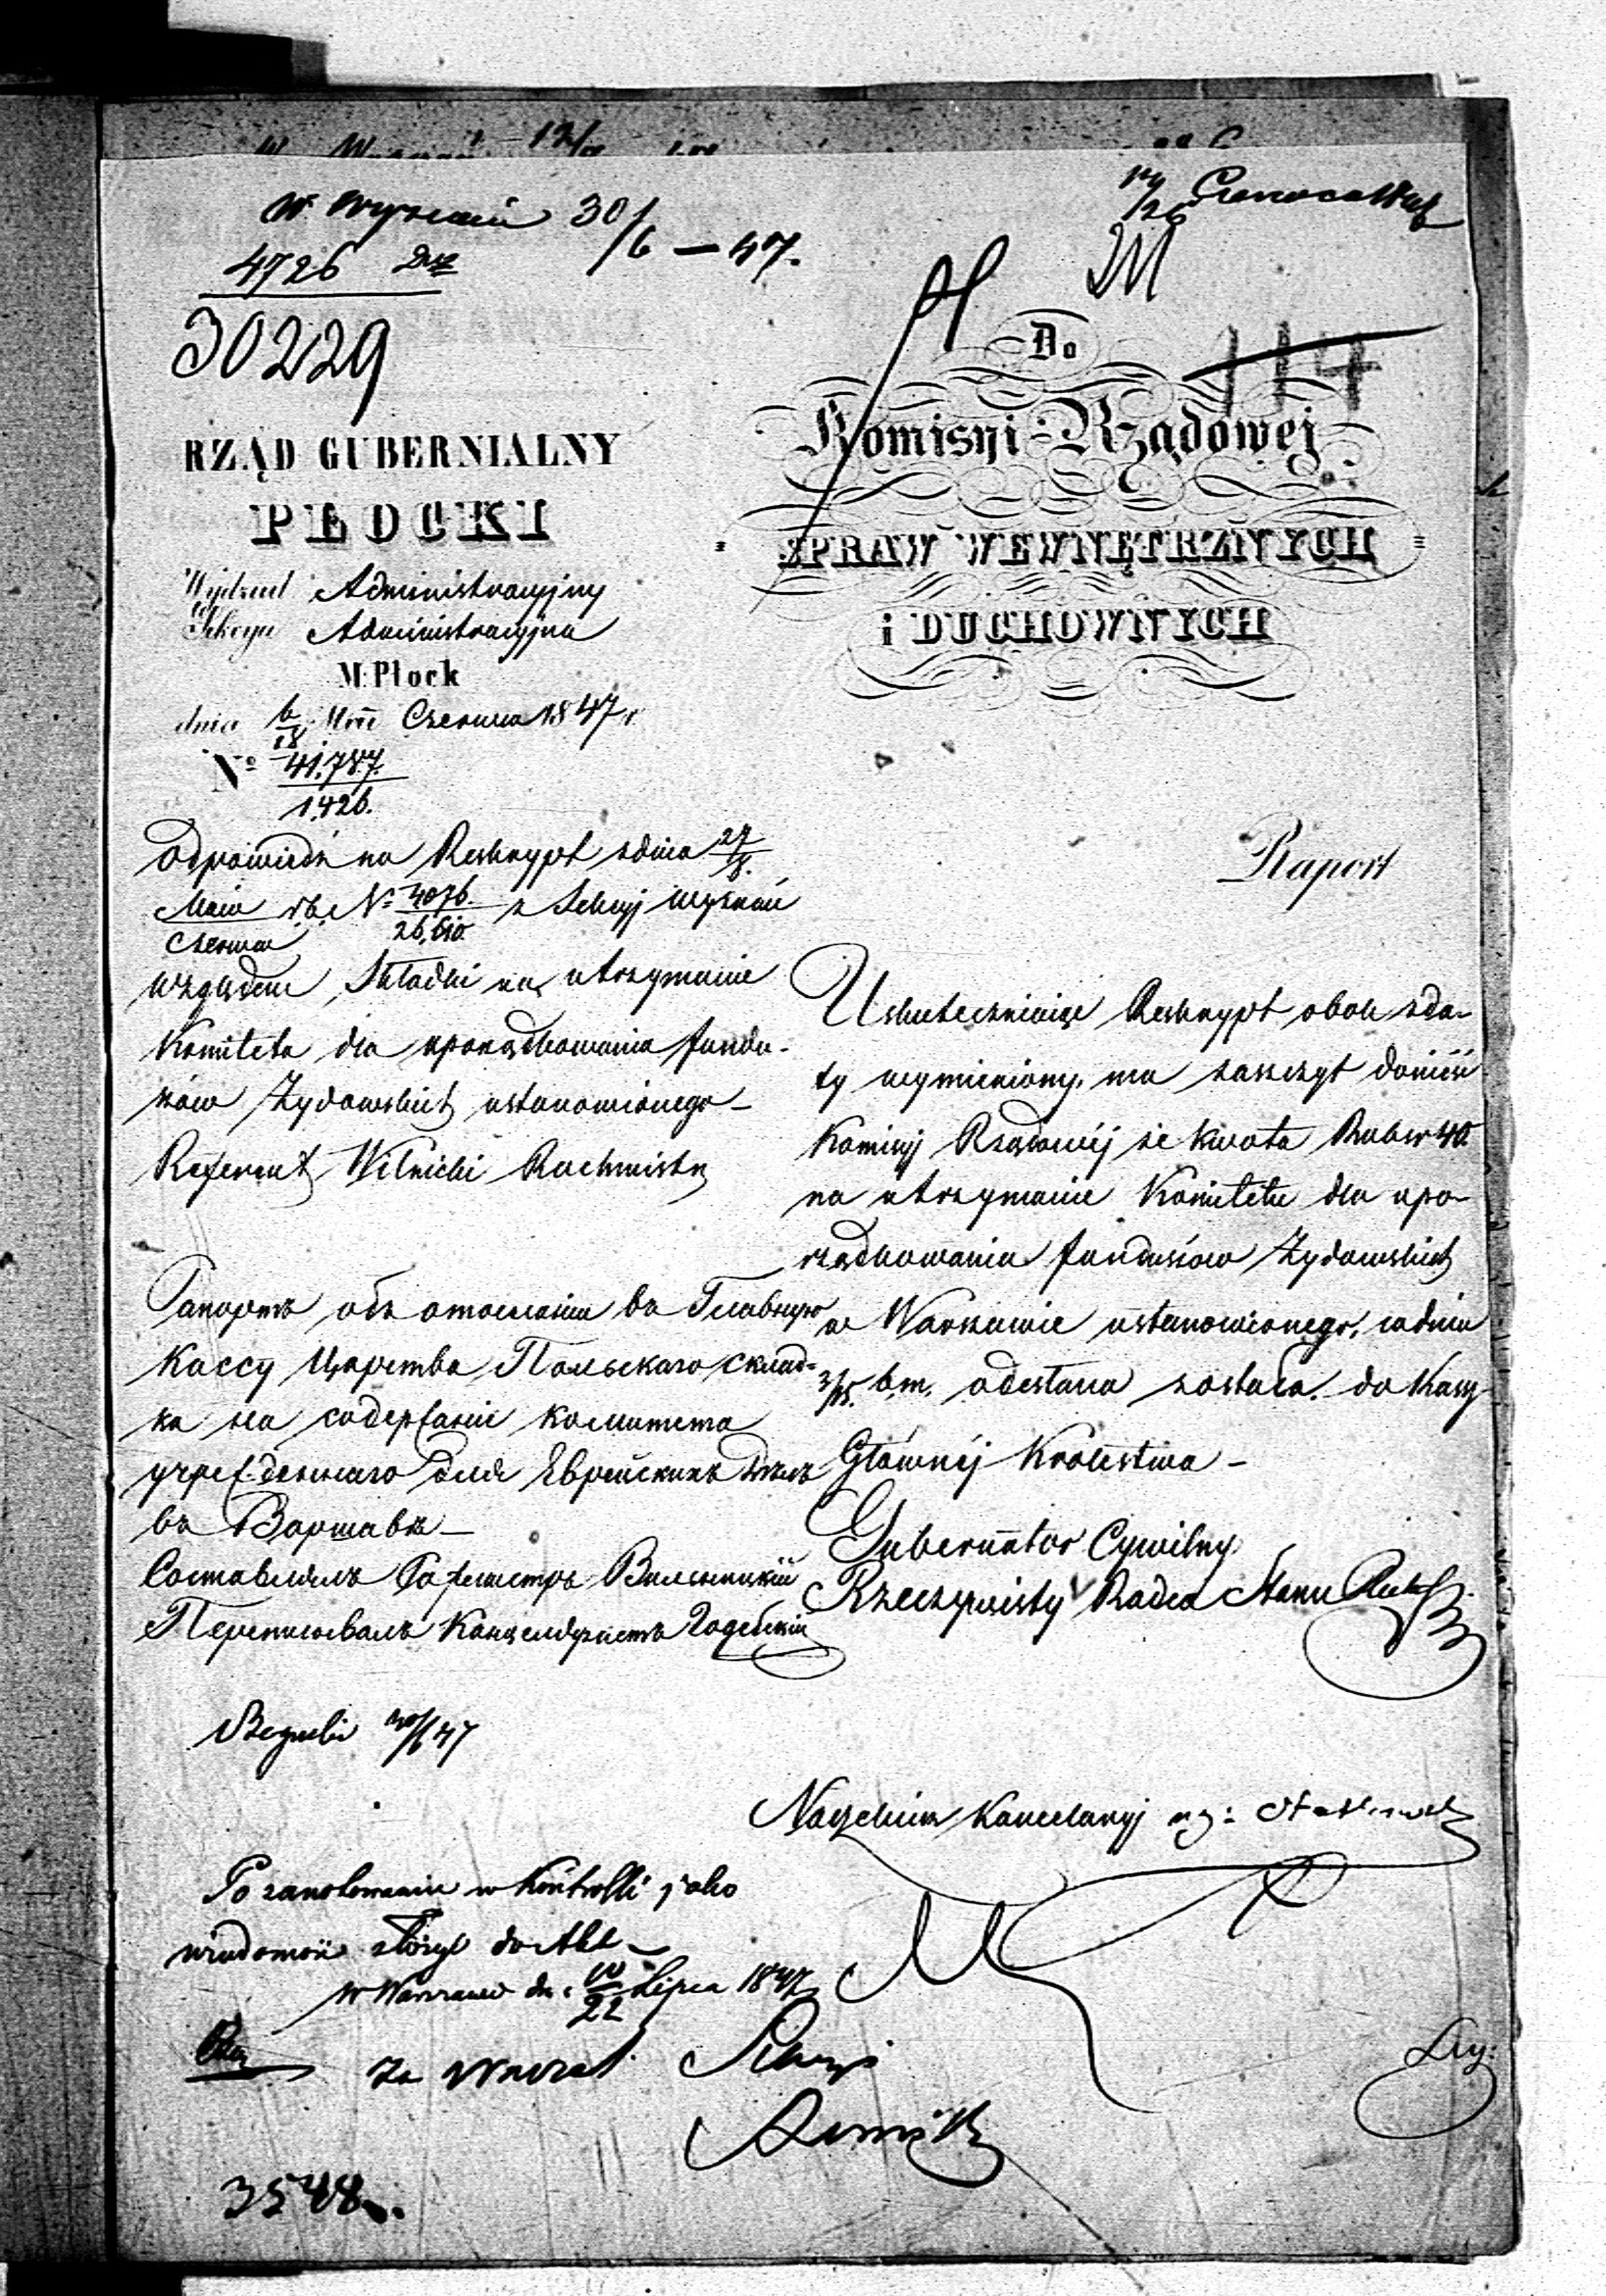 W. Wyznań 30/6 — 47.
4726
30229
14/26 Czerwca
114
RZĄD GUBERNIALNY
PŁOCKI
Wydział Administracyjny
Sekcya Administracyjna
M: Płock
dnia 6/18 Mca Czerwca 1847 r
No 41,787.
1,426.
Odpowiedź na Reskrypt z dnia 27/8.
Maia/Czerwca r.b. No 4076./26,610. z Sekcyj Wyznań
względem Składki na utrzymanie
Komitetu dla uporządkowania fundu-
szów Żydowskich ustanowionego —
Referent Wilnicki Rachmistrz
Рапортъ объ отосланіи въ Главную
Кассу Царства Польскаго склад-
ка на содержаніе комитета
учрежденнаго для Еврейскихъ дѣлъ
въ Варшавѣ —
Составлялъ Вильницкій
Переписывалъ Канцеляристъ Годебскій
Do
Komisyi Rządowej
SPRAW WEWNĘTRZNYCH
i DUCHOWNYCH
Raport
Uskuteczniając Reskrypt obok z da-
ty wymieniony, ma zaszczyt donieść
Komisyj Rządowéj że kwota Rubsr 40
na utrzymanie Komitetu dla upo-
rządkowania funduszów Żydowskich
w Warszawie ustanowionego, w dniu
3/15. b.m. odesłana została do Kassy
Głównéj Królestwa —
Gubernator Cywilny
Rzeczywisty Radca Stanu
30/6 47
Naczelnik Kancelaryj
Po zanotowaniu w Kontrolli jako
wiadomość złożyć do Akt —
w Warszawie dn: 10/22 Lipca 1847
Za Naczel. Sekcyi
3548.